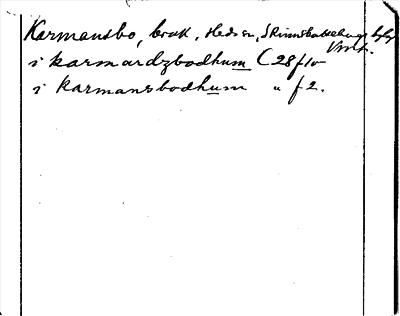 Karmansbo, bruk, Hedsn, Skinnskattebergs bgsl
Vmk.
i karmardzbodhum (28 f10
i karmansbodhum " f2.